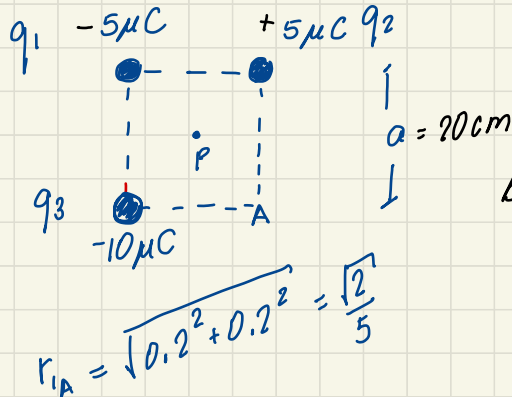 q₁ -5μC +5μC q₂
a = 20cm
P
q₃ A
-10μC
r₁A = √0.2² + 0.2² = √2/5